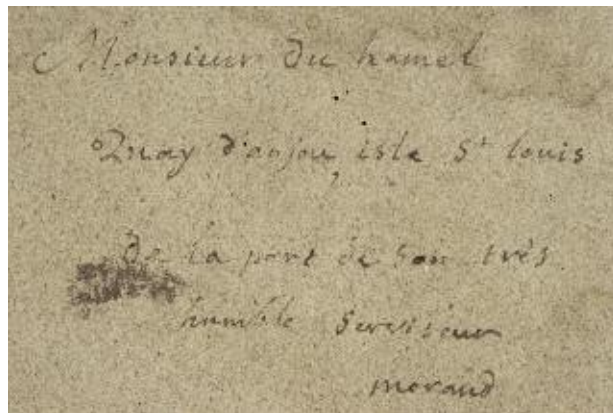 Monsieur du hamel
Quay d'anjou isle St louis
de la part de son très
humble serviteur
morand